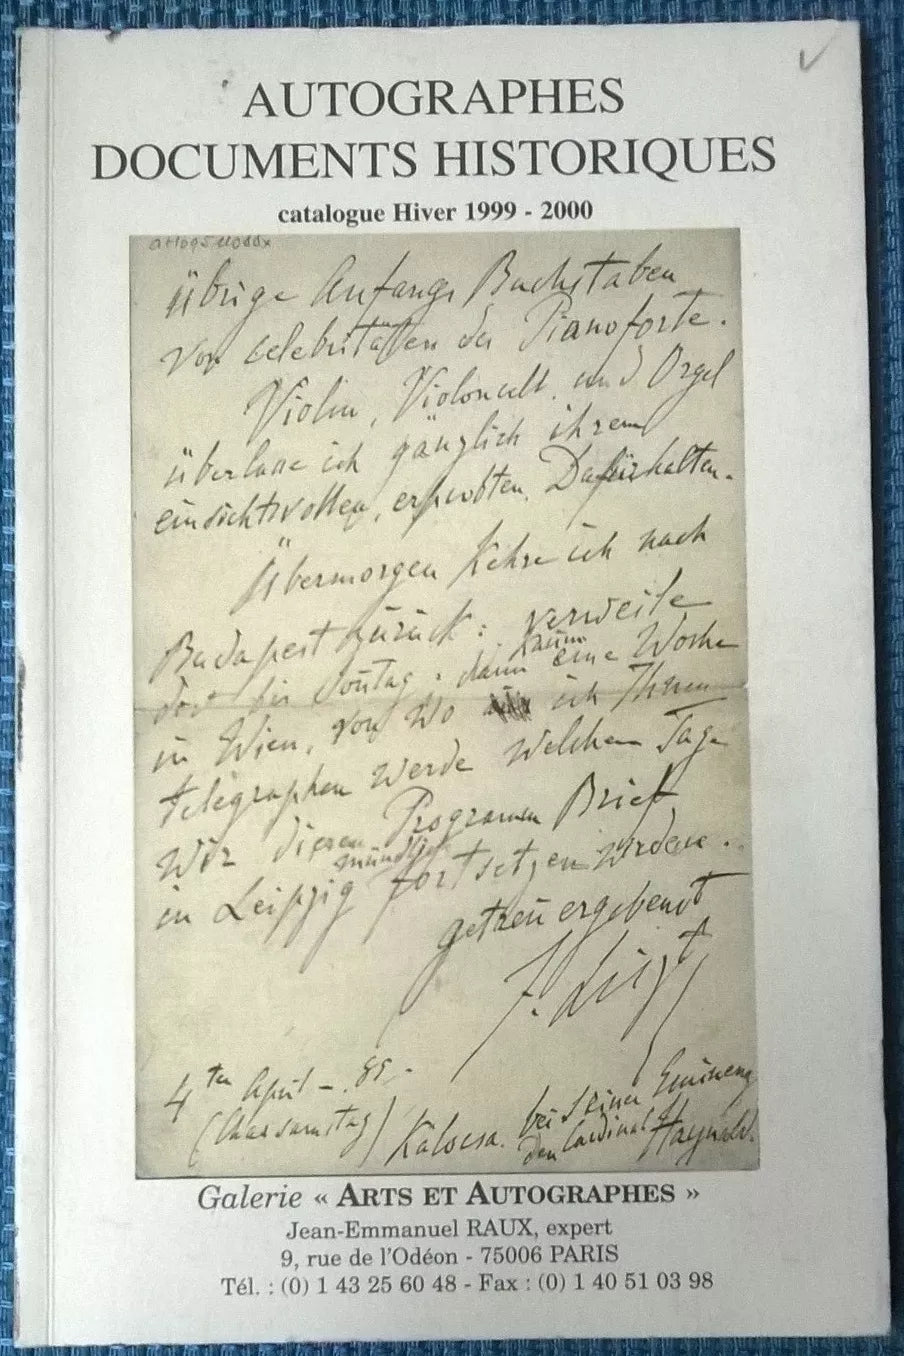 AUTOGRAPHES
DOCUMENTS HISTORIQUES
catalogue Hiver 1999 - 2000
übrige Anfangs Buchstaben
von celebritäten des Pianoforte.
Violin, Violoncell, und Orgel
überlasse ich gänzlich ihrem
einsichtsvollen, erprobten, Dafürhalten.
Übermorgen kehre ich nach
Budapest zurück: verweile
dort bis Sontag. dann kaum eine Woche
in Wien, von wo ich Ihnen
telegraphen werde welchen Tage
wir diesen Programm Brief
in Leipzig mündlich fortsetzen werden.
getreu ergebenst
F. Liszt
4ten April - 85.
(Charsamstag)
Kalocsa. bei Seiner Eminenz
den Cardinal Haynald.
Galerie « ARTS ET AUTOGRAPHES »
Jean-Emmanuel RAUX, expert
9, rue de l'Odéon - 75006 PARIS
Tél. : (0) 1 43 25 60 48 - Fax : (0) 1 40 51 03 98